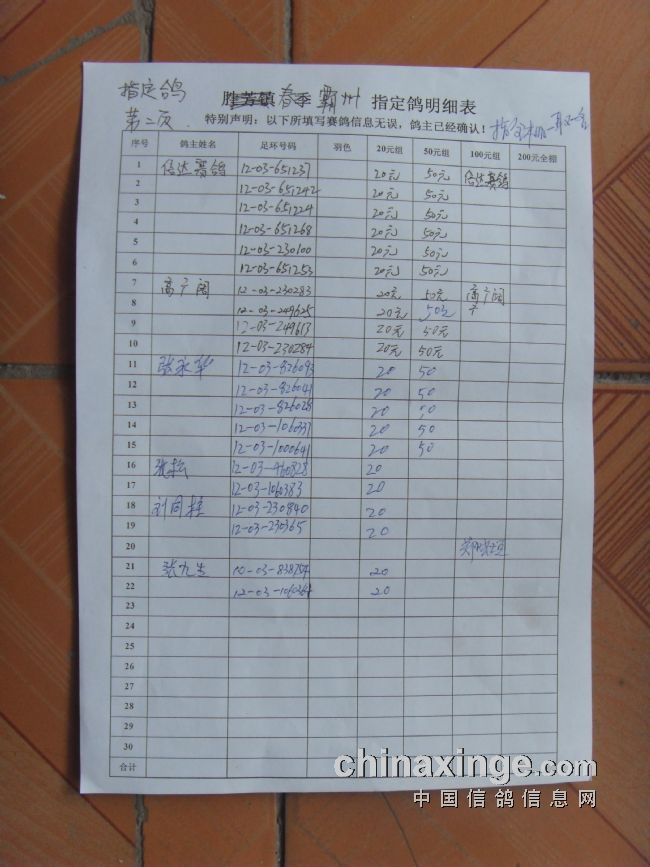 指定鸽
第二次
胜芳镇春季 霸州 指定鸽明细表
特别声明：以下所填写赛鸽信息无误，鸽主已经确认！
序号 鸽主姓名 足环号码 羽色 20元组 50元组 100元组 200元全棚
1 信达赛鸽 12-03-651237 20元 50元 信达赛鸽
2 12-03-651242 20元 50元
3 12-03-651224 20元 50元
4 12-03-651268 20元 50元
5 12-03-230100 20元 50元
6 12-03-651253 20元 50元
7 高广阔 12-03-230283 20元 50元 高广阔
8 12-03-249625 20元 50元
9 12-03-249613 20元 50元
10 12-03-230284 20元 50元
11 张永华 12-03-826093 20 50
12 12-03-826041 20 50
13 12-03-826028 20 50
14 12-03-1060337 20 50
15 12-03-1000641 20 50
16 12-03-460828 20
17 12-03-1060383 20
18 刘同柱 12-03-230840 20
19 12-03-230365 20
20
21 张九生 10-03-838784 20
22 12-03-1060364 20
23
24
25
26
27
28
29
30
合计
chinaxinge.com
中国信鸽信息网